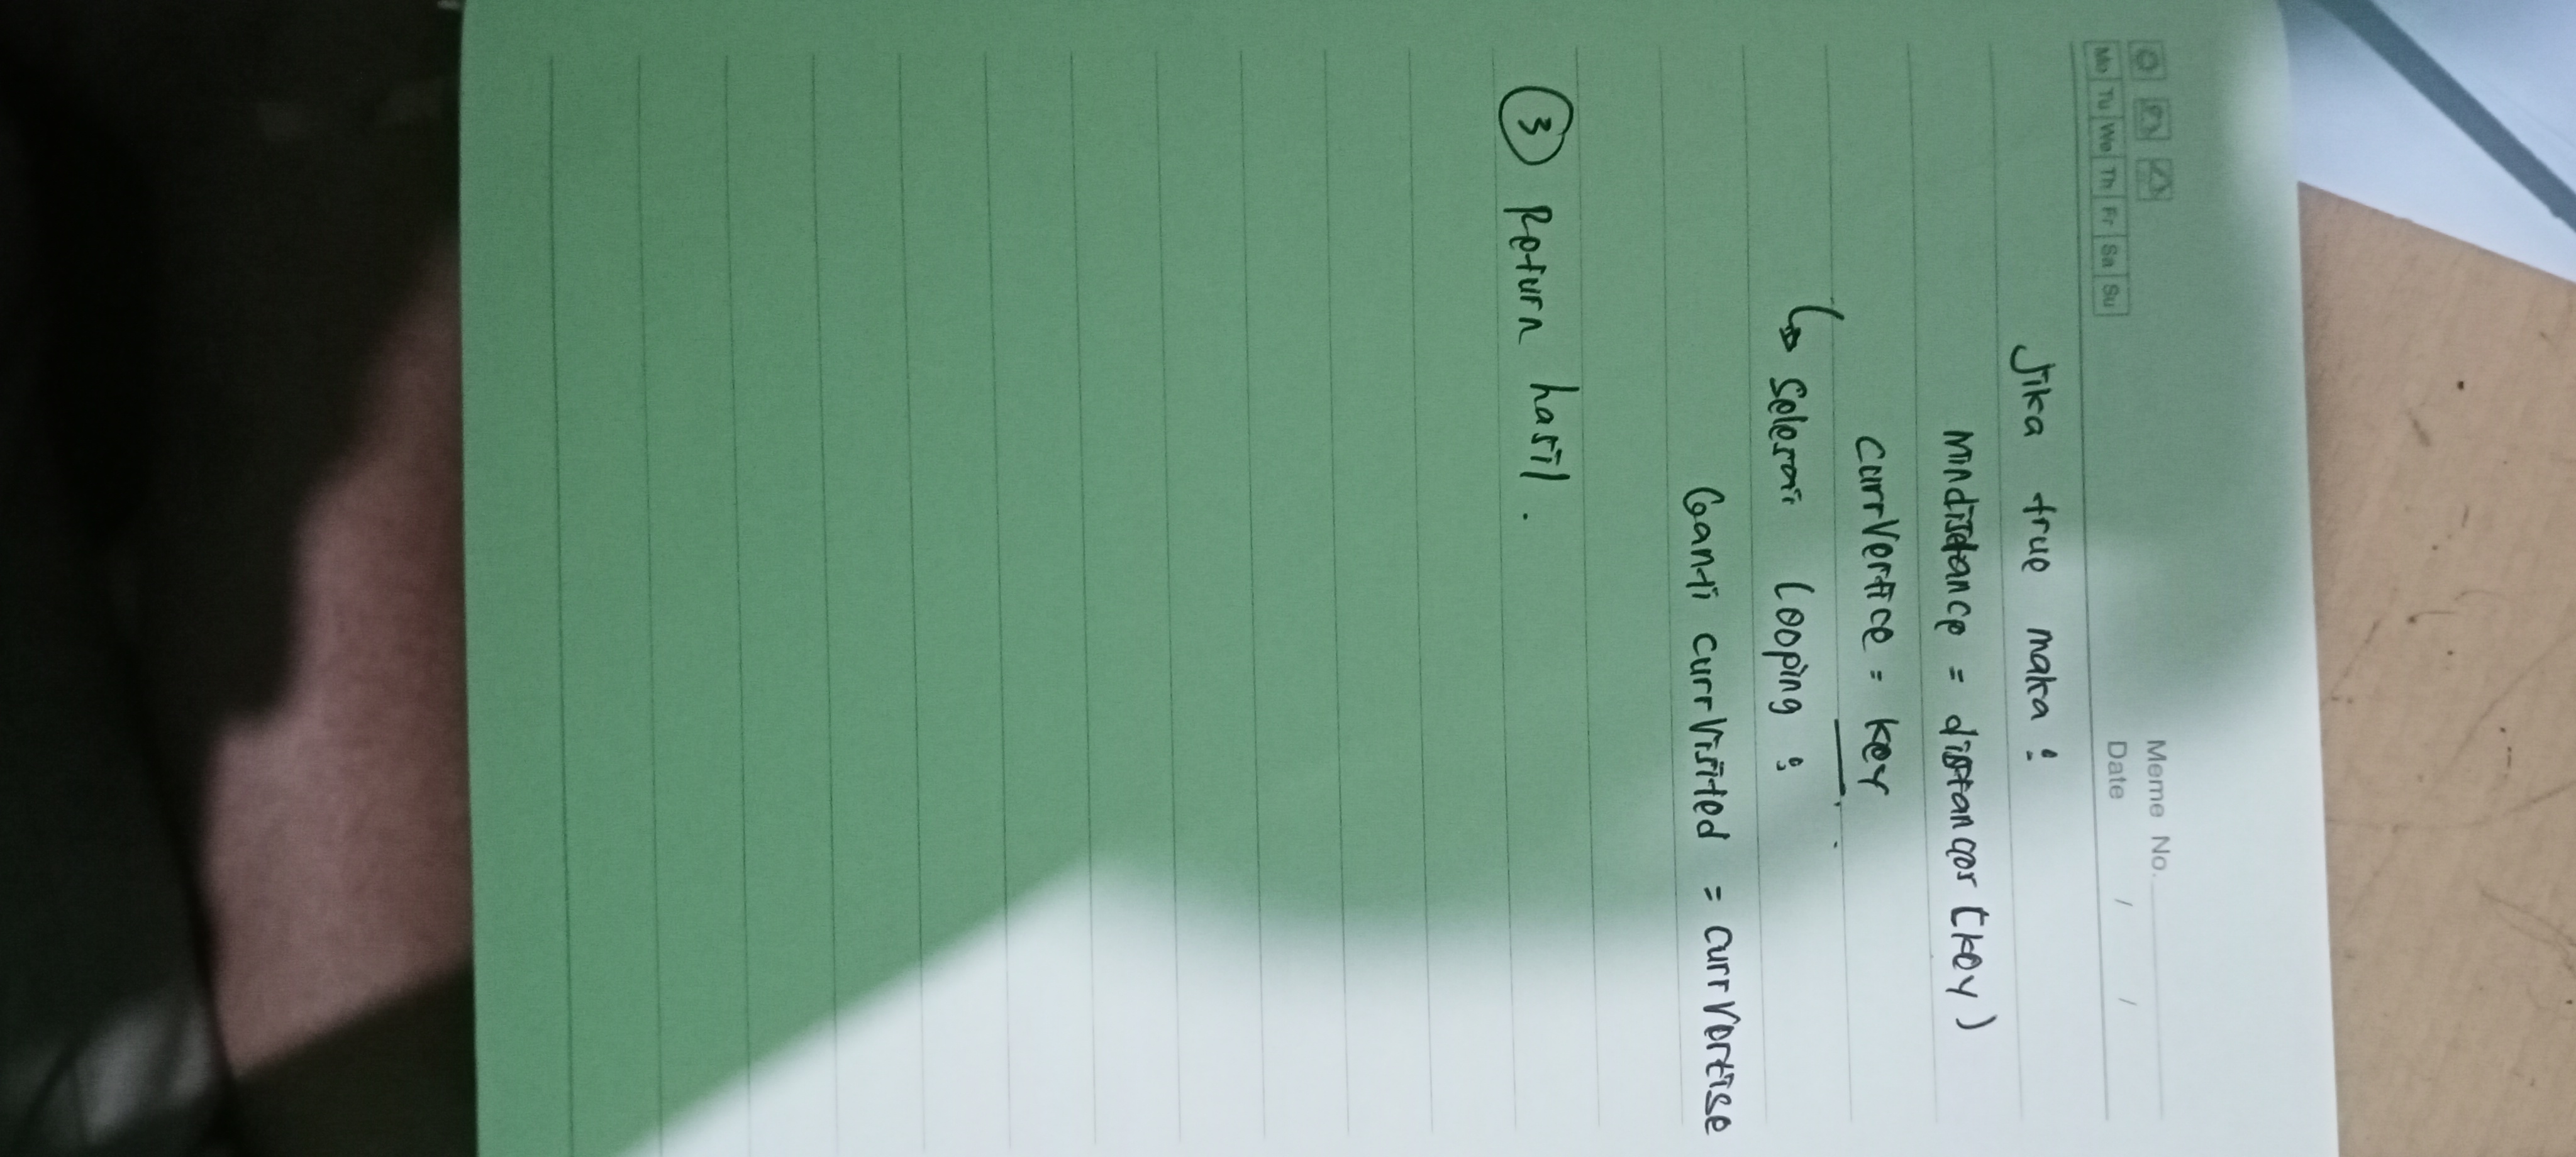 Meme No.
Mo Tu We Th Fr Sa Su
Date / /
Jika true maka :
Mindistance = distances [key)
currVertice = key
↳ Selesai looping :
Ganti currVisited = currVertise
③ Return hasil.